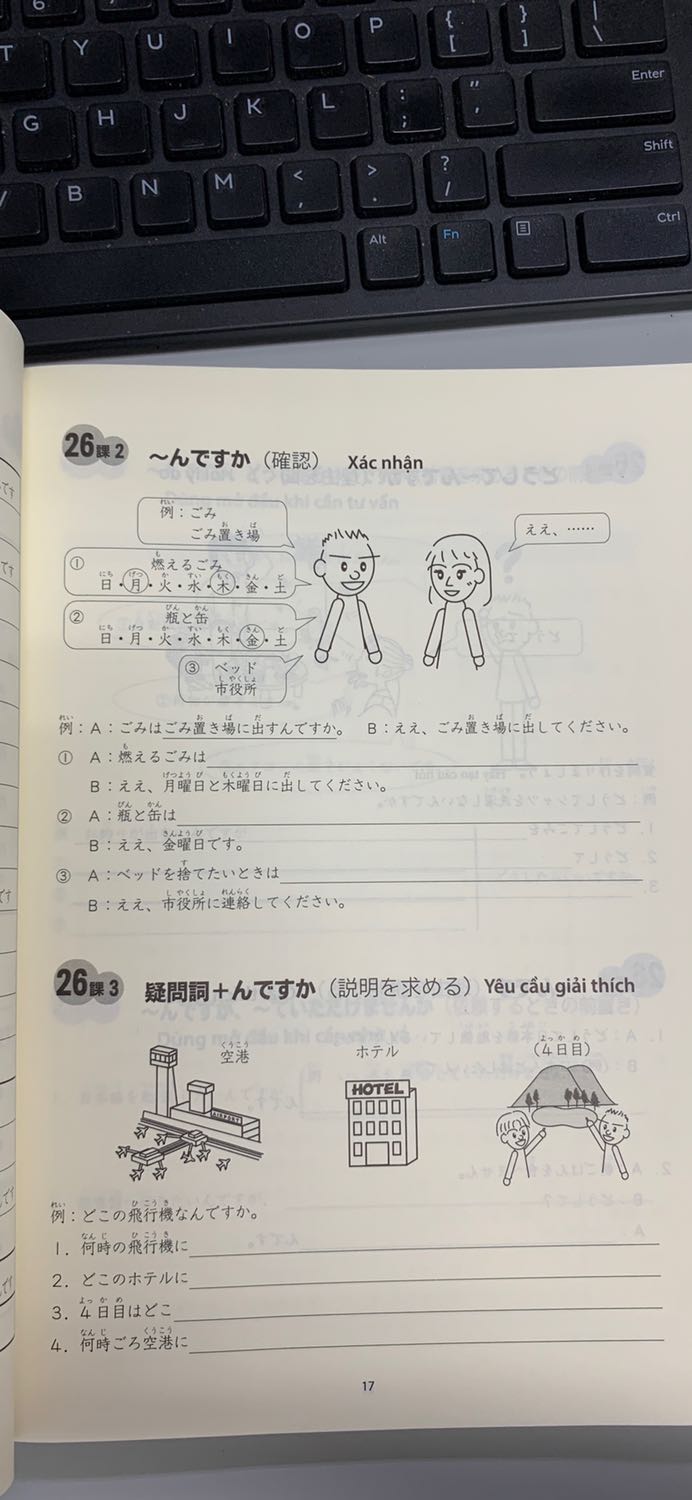 6
T Y U I O P { [ } ] | \
G H J K L : ; " ' Enter
/ B N M < , > . ? / Shift
Alt Fn Ctrl
26課2 〜んですか（確認） Xác nhận
例：ごみ
ごみ置き場
ええ、……
① 燃えるごみ
日・月・火・水・木・金・土
② 瓶と缶
日・月・火・水・木・金・土
③ ベッド
市役所
例：A：ごみはごみ置き場に出すんですか。 B：ええ、ごみ置き場に出してください。
① A：燃えるごみは
B：ええ、月曜日と木曜日に出してください。
② A：瓶と缶は
B：ええ、金曜日です。
③ A：ベッドを捨てたいときは
B：ええ、市役所に連絡してください。
26課3 疑問詞＋んですか（説明を求める） Yêu cầu giải thích
空港
ホテル
（4日目）
AIRPORT
HOTEL
例：どこの飛行機なんですか。
1．何時の飛行機に
2．どこのホテルに
3．4日目はどこ
4．何時ごろ空港に
17